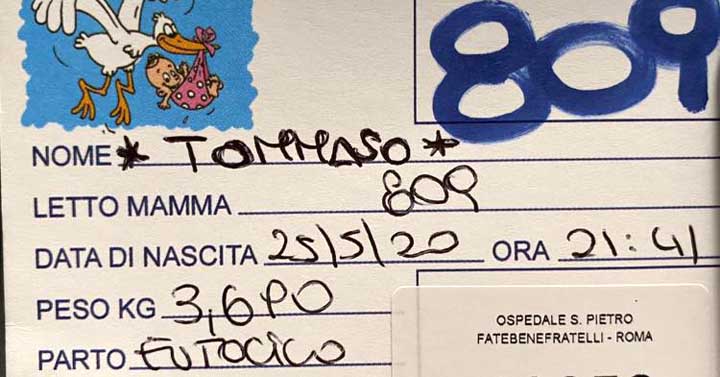 809
NOME * TOMMASO *
LETTO MAMMA 809
DATA DI NASCITA 25/5/20 ORA 21:41
PESO KG 3,690
PARTO EUTOCICO
OSPEDALE S. PIETRO
FATEBENEFRATELLI - ROMA